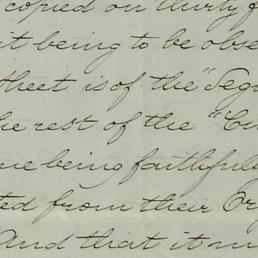 copied on thirty f
it being to be obse
sheet is of the "Seg
he rest of the "Cu
me being faithfull
ted from their Or
And that it m